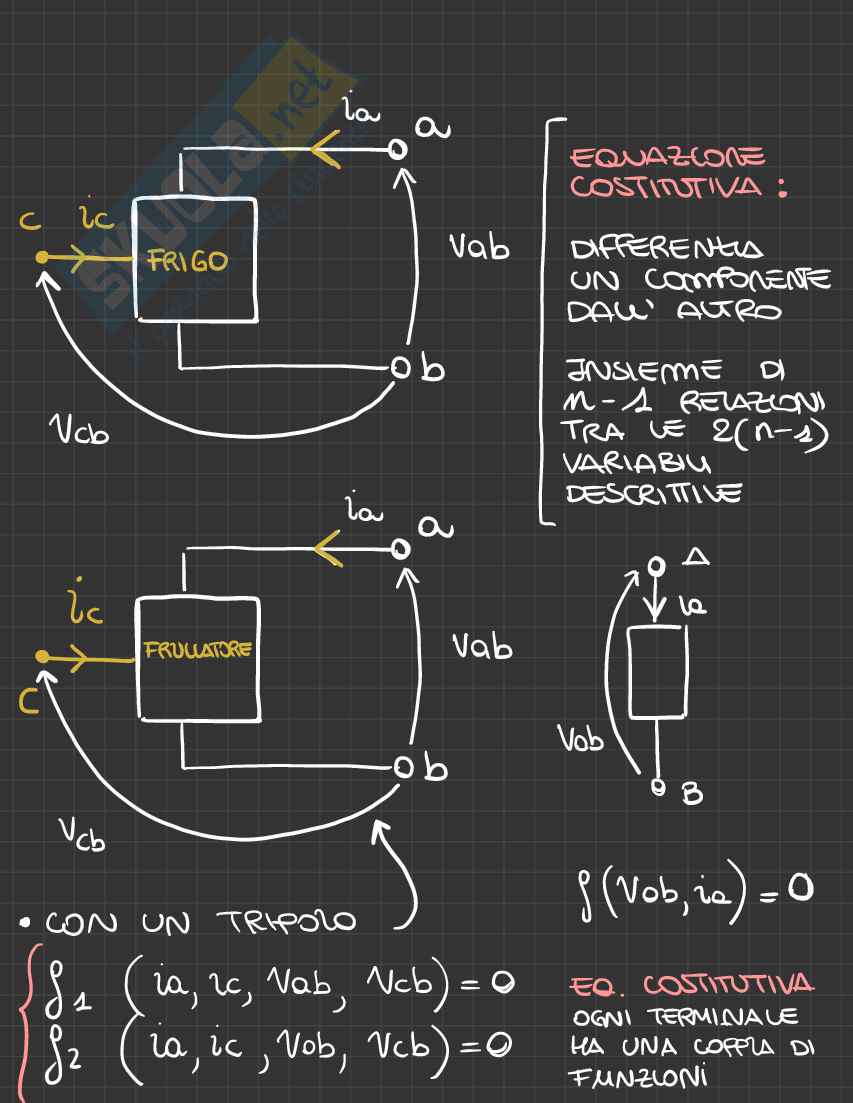 SKUOLA.net
ia
a
c
ic
FRIGO
Vab
b
Vcb
EQUAZIONE
COSTITUTIVA :
DIFFERENZIA
UN COMPONENTE
DALL' ALTRO
INSIEME DI
n-1 RELAZIONI
TRA LE 2(n-1)
VARIABILI
DESCRITTIVE
ia
a
ic
FRULLATORE
C
Vab
b
Vcb
A
ia
Vab
B
• CON UN TRIPOLO
f1 (ia, ic, Vab, Vcb) = 0
f2 (ia, ic, Vab, Vcb) = 0
f(Vab, ia) = 0
EQ. COSTITUTIVA
OGNI TERMINALE
HA UNA COPPIA DI
FUNZIONI